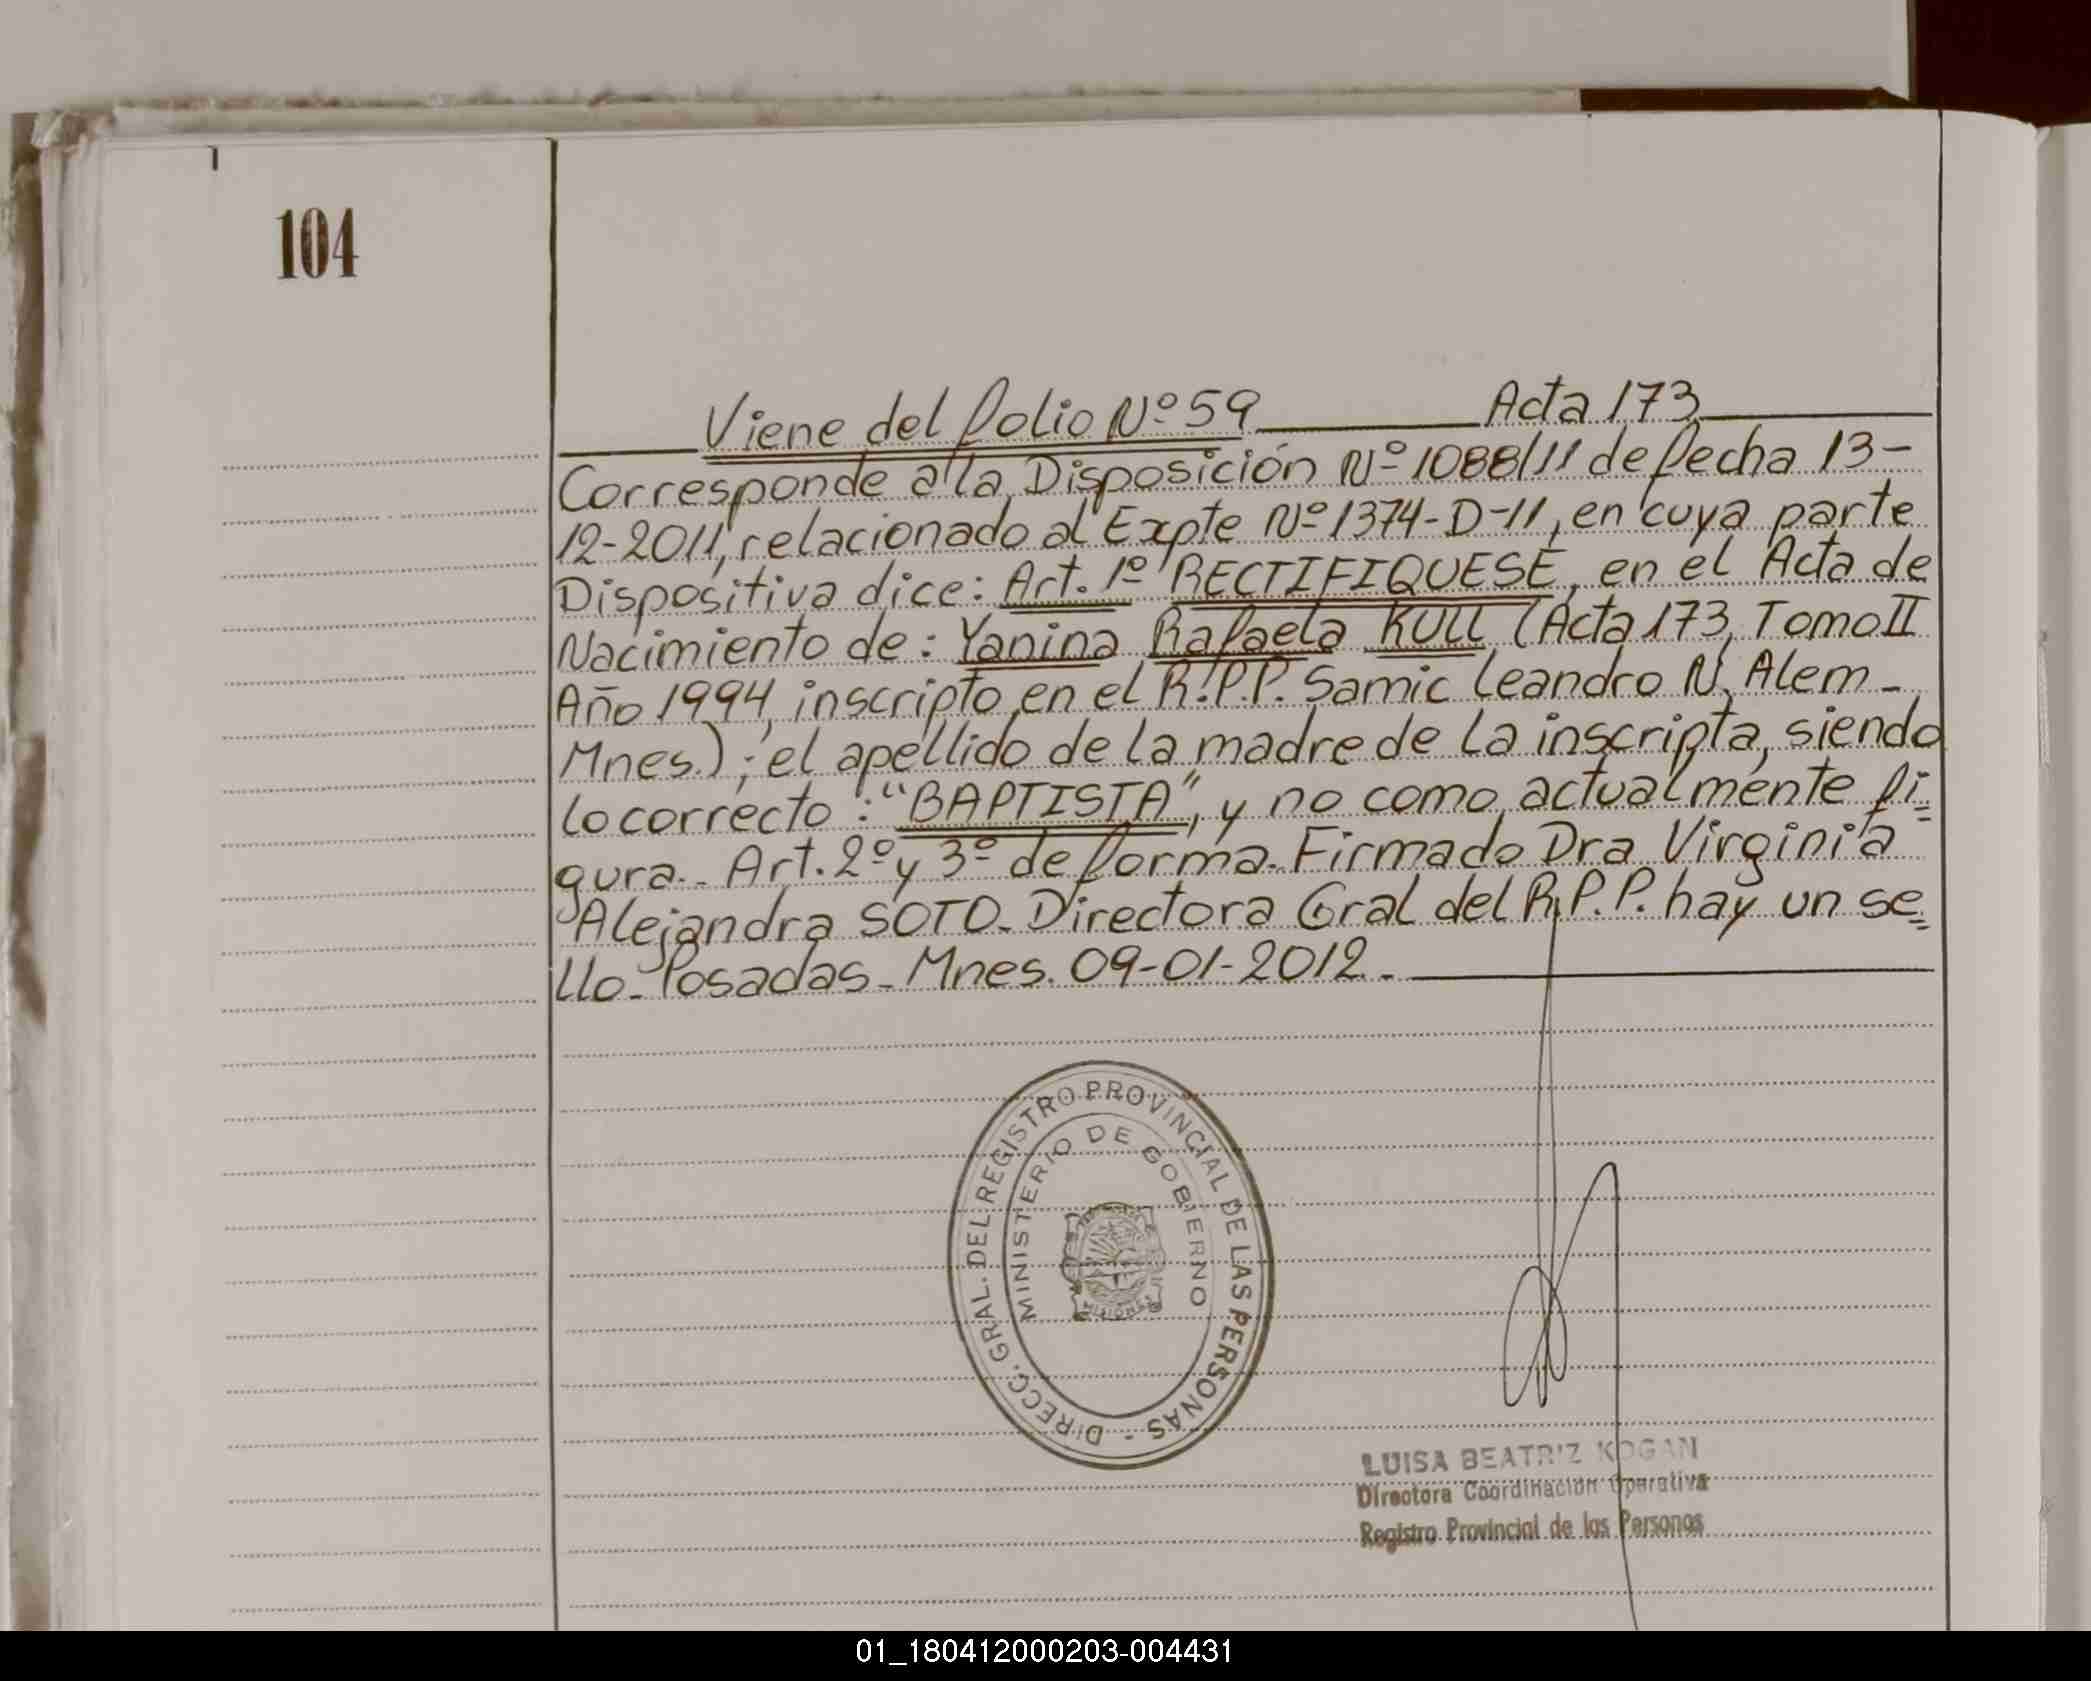 104
Viene del folio Nº 59 Acta 173
Corresponde a la Disposición Nº 1088/11 de fecha 13-
12-2011, relacionado al Expte Nº 1374-D-11, en cuya parte
Dispositiva dice: Art. 1º RECTIFIQUESE, en el Acta de
Nacimiento de: Yanina Rafaela KULL (Acta 173, Tomo II
Año 1994, inscripto en el R.P.P. Samic Leandro N. Alem -
Mnes.); el apellido de la madre de la inscripta, siendo
lo correcto: "BAPTISTA", y no como actualmente fi=
gura.- Art. 2º y 3º de forma. Firmado Dra Virginia
Alejandra SOTO - Directora Gral del R.P.P. hay un se=
llo - Posadas - Mnes. 09-01-2012.-
DIRECC. GRAL. DEL REGISTRO PROVINCIAL DE LAS PERSONAS -
MINISTERIO DE GOBIERNO
MISIONES
LUISA BEATRIZ KOGAN
Directora Coordinación Operativa
Registro Provincial de las Personas
01_180412000203-004431